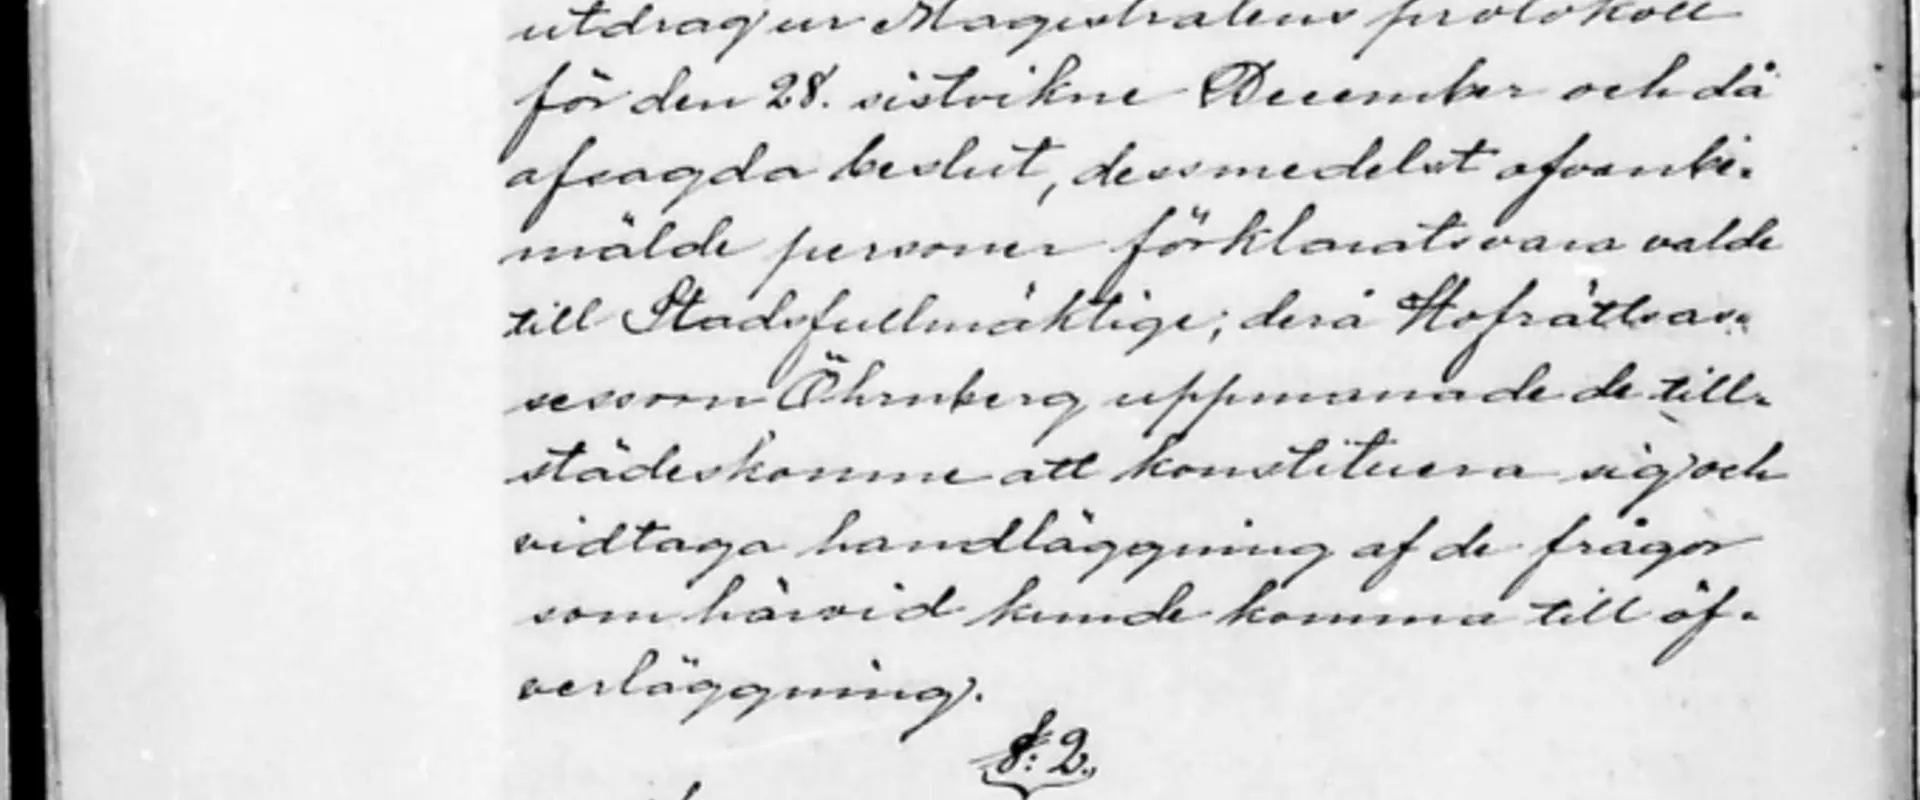 utdrag ur Magistratens protokoll
för den 28. sistvikne December och då
afsagda beslut, dessmedelst ofvanbe-
mälde personer förklarats vara valde
till Stadsfullmäktige; derå Hofrättsas-
sessorn Öhrnberg uppmanade de till-
städeskomne att konstituera sig och
vidtaga handläggning af de frågor
som härvid kunde komma till öf-
verläggning.
§: 2.